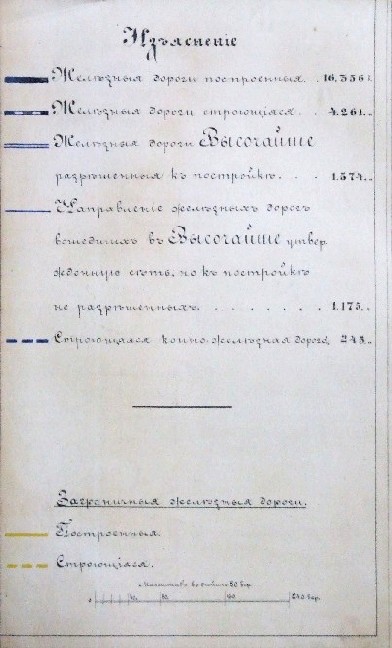 Изъясненіе
Желѣзныя дороги построенныя. . 16.356.
Желѣзныя дороги строющіяся. . 4.261.
Желѣзныя дороги Высочайше
разрѣшенныя къ постройкѣ. . . 1.374.
Направленіе желѣзныхъ дорогъ
вошедшихъ въ Высочайше утвер
жденную сѣть, но къ постройкѣ
не разрѣшенныхъ. . . . . . . 1.175.
Строющаяся конно-желѣзная дорога, 245.
Заграничныя желѣзныя дороги.
Построенныя.
Строющіяся.
240 вер.